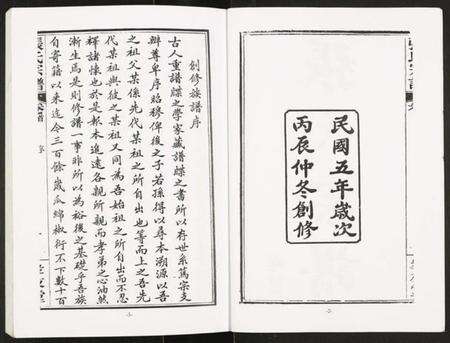 民國五年歲次
丙辰仲冬創修
創修族譜序
古人重譜牒之學家藏譜牒之書所以存世系篤宗支
辨尊卑序昭穆俾後之子若孫得以尋本溯源以吾
之祖父某係先代某祖之所自出也等而上之吾先
代某祖與彼之某祖又同為吾始祖之所自出而不忍
釋諸懷也於是報本追遠各親所親而孝弟之心油然
漸生焉是則修譜一事非所以為裕後之基礎乎吾族
自寄籍以來迄今三百餘歲瓜綿椒衍不下數十百